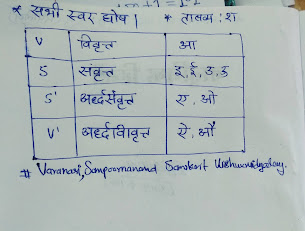 * सभी स्वर घोष। * तालव्य : श
V विवृत्त आ
S संवृत्त इ, ई, उ, ऊ
S' अर्द्धसंवृत्त ए, ओ
V' अर्द्धविवृत्त ऐ, औ
# Varanasi, Sampoornanand Sanskrit